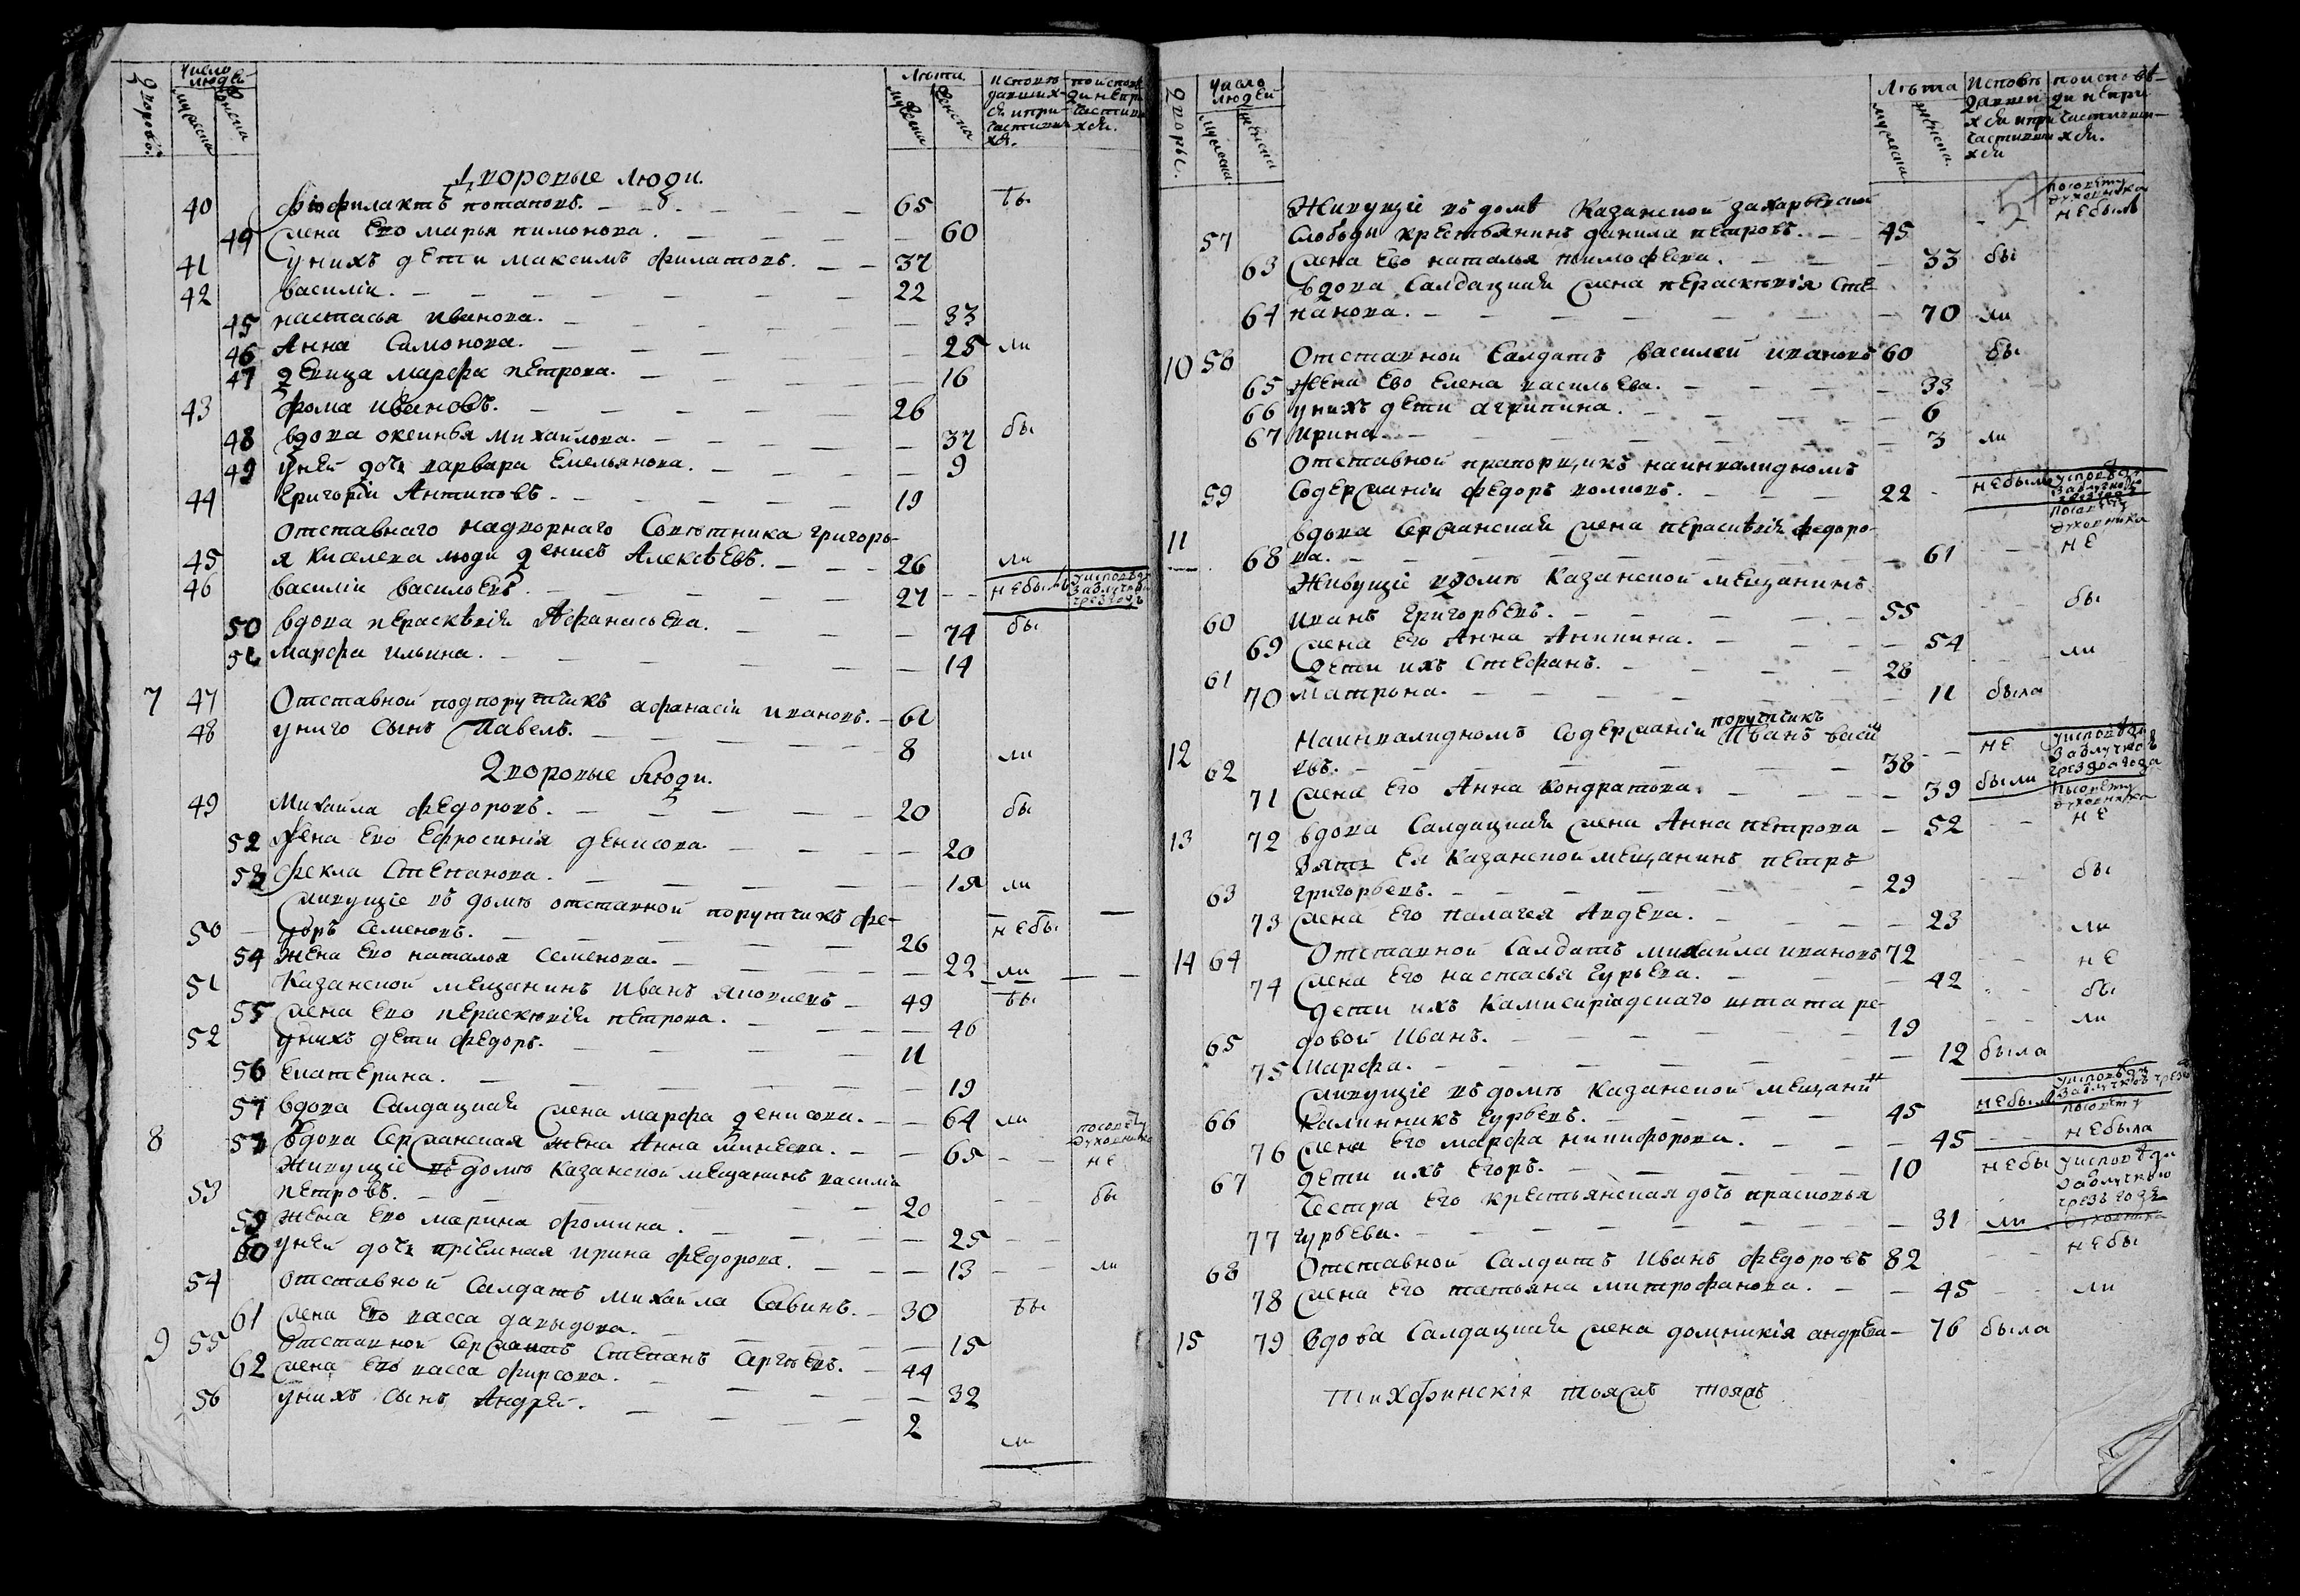 Дворовъ.
Число людей
мужеска
женска
Лѣта
мужеска
женска
исповѣ-
давших-
ся и при-
частивших
ся.
по исповѣ-
ди не при-
частивши
хся.
Дворовые люди.
40 Феофилактъ Потаповъ. 65 бы
44 жена ево Марья Пимонова. 60
41 у нихъ дети Максимъ Филатовъ. 37
42 Василіи. 22
45 Настасья Иванова. 33
46 Анна Симонова. 25 ли
47 девица Марфа Петрова. 16
43 Фома Ивановъ. 26
48 вдова Оксинья Михаилова. 37 бы
49 у ней дочь Варвара Емельянова. 9
44 Григорій Антиповъ. 19
Отставнаго надворнаго Советника Григорь-
45 я Киселева люди Денисъ Алексѣевъ. 26 ли
46 Василіи Васильевъ. 27 небылъ
50 вдова Перасковія Афанасьева. 74 бы
51 Марфа Ильина. 14
7 47 Отставной подпорутчикъ Афанасіи Ивановъ. 61
48 у него сынъ Павелъ. 8 ли
Дворовые люди.
49 Михаила Федоровъ. 20 бы
52 жена ево Ефросинія Денисова. 20
53 Фекла Степанова. 18 ли
живущіе въ домѣ отставной порутчикъ Фе-
50 доръ Семеновъ. 26 небы
54 жена ево Наталья Семенова. 22 ли
51 Казанской мещанинъ Иванъ Яковлевъ 49 бы
55 жена ево Перасковія Петрова. 46
52 у нихъ дети Федоръ. 11
56 Екатерина. 19
57 вдова Салдацкая жена Марфа Денисова. 64 ли
8 58 вдова Сержанская жена Анна Минеева. 65 по совету духовника не
живущіе въ домѣ Казанской мещанинъ Василіи
53 Петровъ. 20 бы
59 жена ево Марина Фомина. 25
60 у ней дочь пріемная Ирина Федорова. 13 ли
54 отставной Салдатъ Михаила Савинъ. 30 бы
61 жена ево Васса Давыдова. 15
9 55 Отставной Сержантъ Степанъ Сергѣевъ. 44
62 жена ево Васса Фирсова. 32
56 у нихъ сынъ Андрей. 2 ли
Дворы.
Число людей
мужеска
женска
Лѣта
мужеска
женска.
Исповѣ
давши
хся и при
частивши
хся
по исповѣ-
ди не при
частивши-
хся.
57
по совету
духовника
не былъ
Живущіе въ домѣ Казанской
57 Слободы крестьянинъ Данила Петровъ. 45
63 жена ево Наталья Тимофеева. 33 бы
вдова Салдацкая жена Перасковія Сте-
64 панова. 70 ли
10 58 Отставной Салдатъ Василей Ивановъ 60 бы
65 жена ево Елена Васильева. 33
66 у нихъ дети Агрипина. 6
67 Ирина. 3 ли
Отставной прапорщикъ на инвалидномъ
59 содержаніи Федоръ 22 небылъ
11 вдова Сержанская жена Перасковія Федоро-
68 ва. 61 по совету духовника не
Живущіе в домѣ Казанской мещанинъ
60 Иванъ Григорьевъ. 55 бы
69 жена его Анна Аникина. 54
61 дети ихъ Стефанъ. 28 ли
70 Матрона. 11 была
12 На инвалидномъ содержаніи порутчикъ Иванъ Васи
62 евъ. 38 не
71 жена его Анна Кондратова. 39 были
13 72 вдова Салдацкая жена Анна Петрова 52 по совету духовника не
Зять ея Казанской мещанинъ Петръ
63 Григорьевъ. 29 бы
73 жена его Палагея Авдеева. 23 ли
14 64 Отставной Салдатъ Михаила Ивановъ 72 не
74 жена его Настасья Гурьева. 42 бы
дети ихъ Камисиріадскаго штата ре-
65 довой Иванъ. 19 ли
75 Марфа. 12 была
живущіе въ домѣ Казанской мещанин
66 Калинникъ Гурьевъ. 45 небылъ
76 жена его Марфа Никифорова. 45 не была
67 дети ихъ Егоръ. 10 небы
Сестра его крестьянская дочь Прасковья
77 Гурьева. 31 ли
68 Отставной Салдатъ Иванъ Федоровъ 82 небы
78 жена его Татьяна Митрофанова. 45 ли
15 79 вдова Салдацкая жена Домникія Андрѣева 76 была